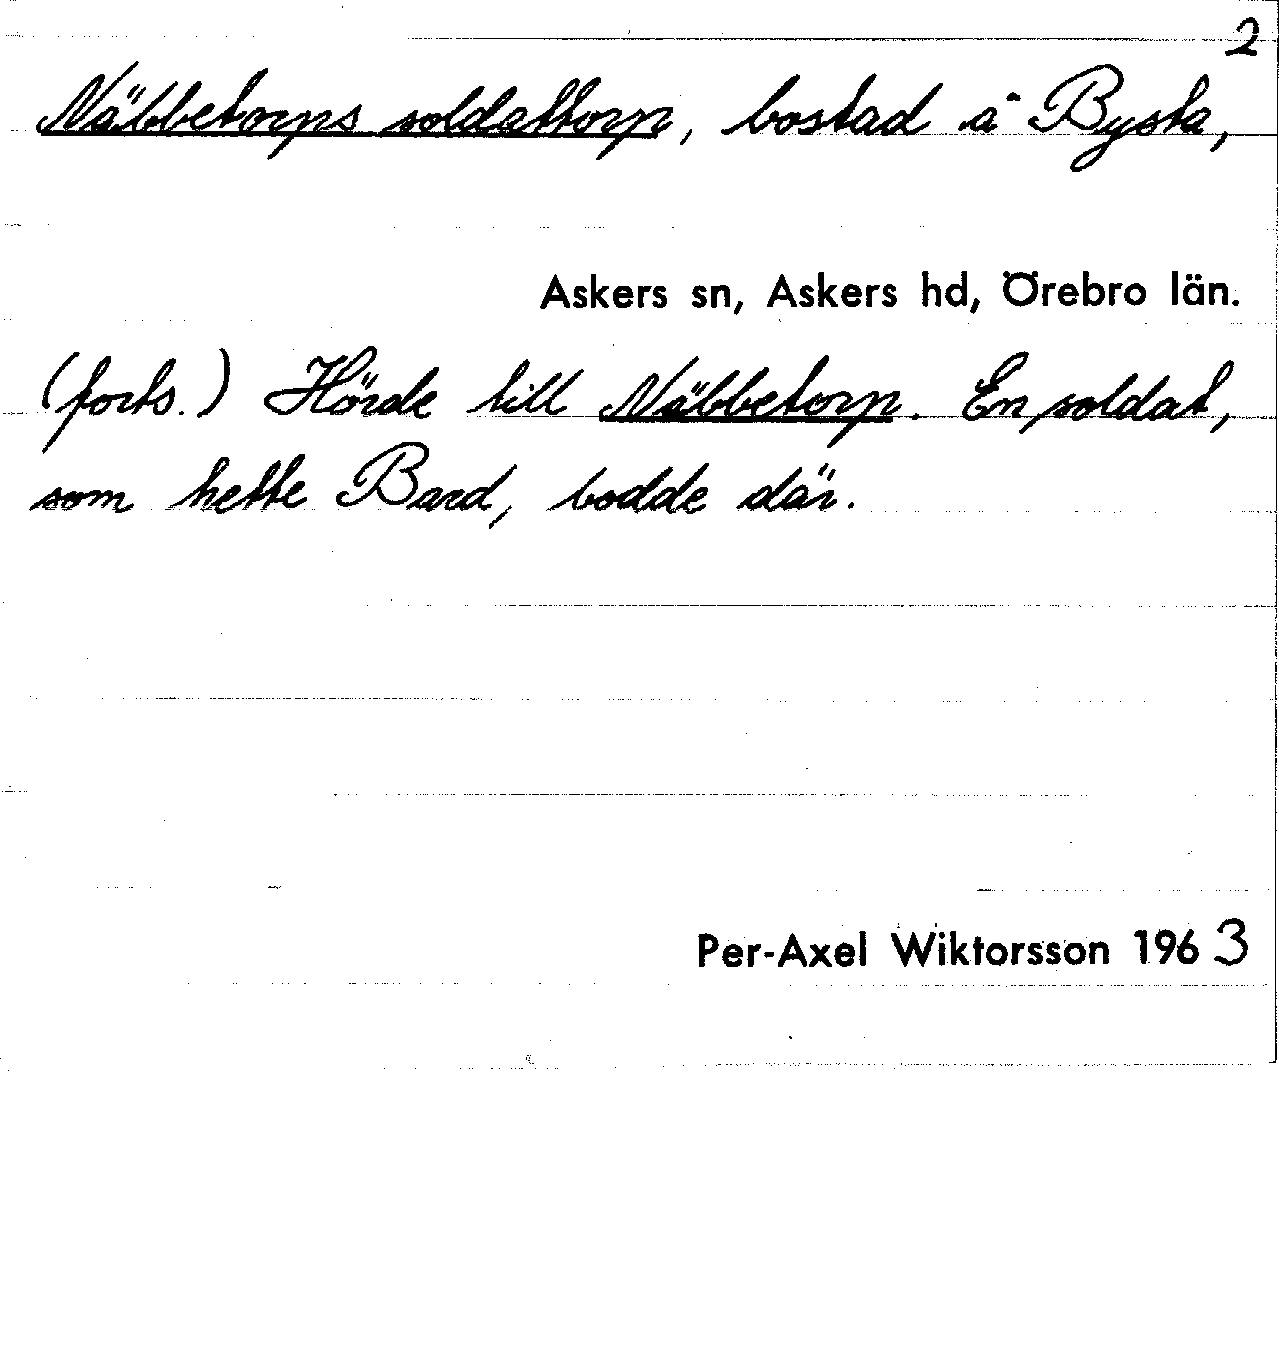 2
Näbbetorps soldattorp, bostad å Bysta,
Askers sn, Askers hd, Örebro län.
(forts.) Hörde till Näbbetorp. En soldat,
som hette Bard, bodde där.
Per-Axel Wiktorsson 1963